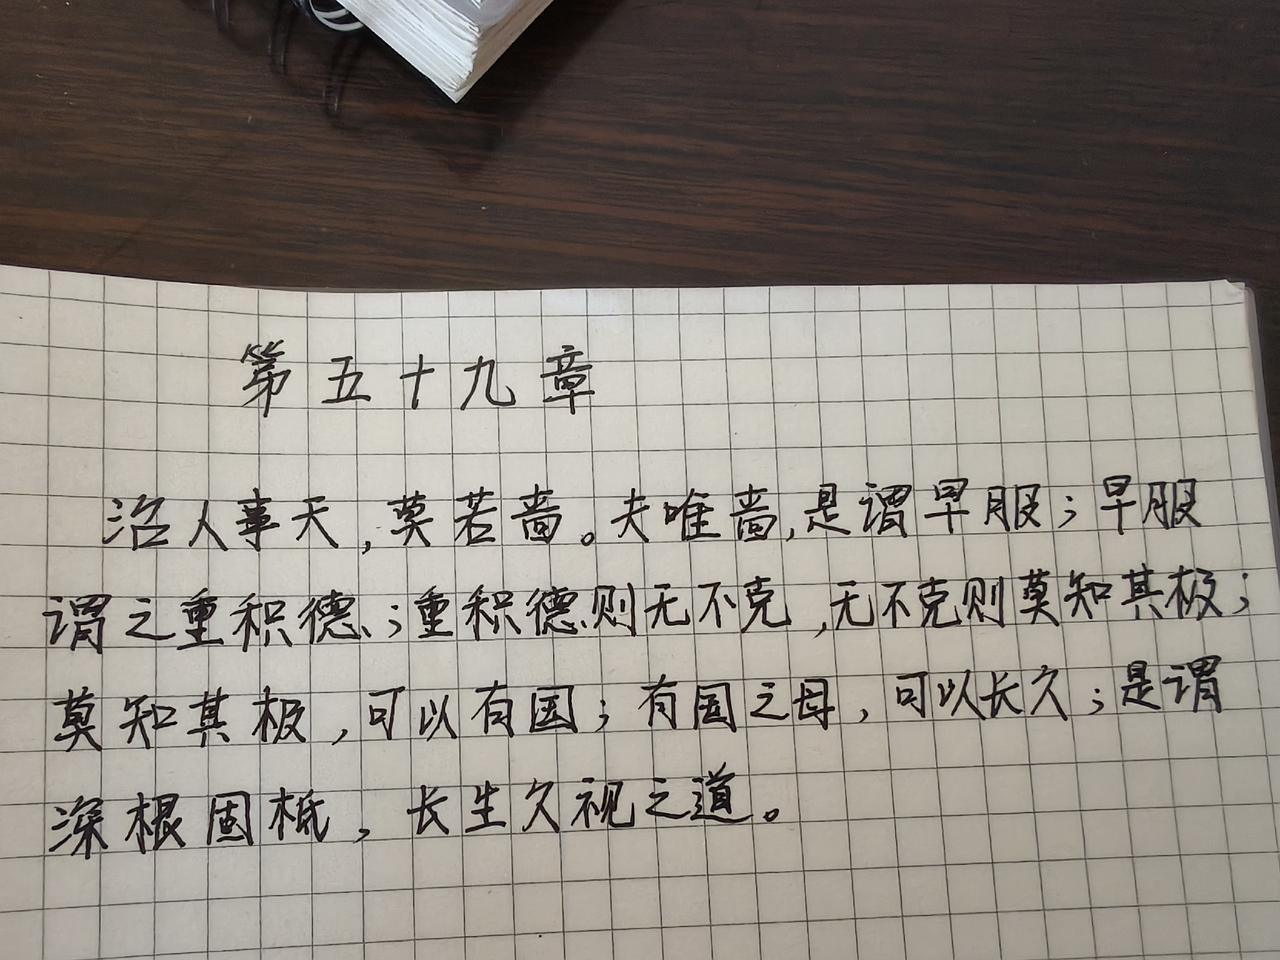 第五十九章
治人事天,莫若啬。夫唯啬,是谓早服;早服
谓之重积德;重积德则无不克,无不克则莫知其极;
莫知其极,可以有国;有国之母,可以长久;是谓
深根固柢,长生久视之道。